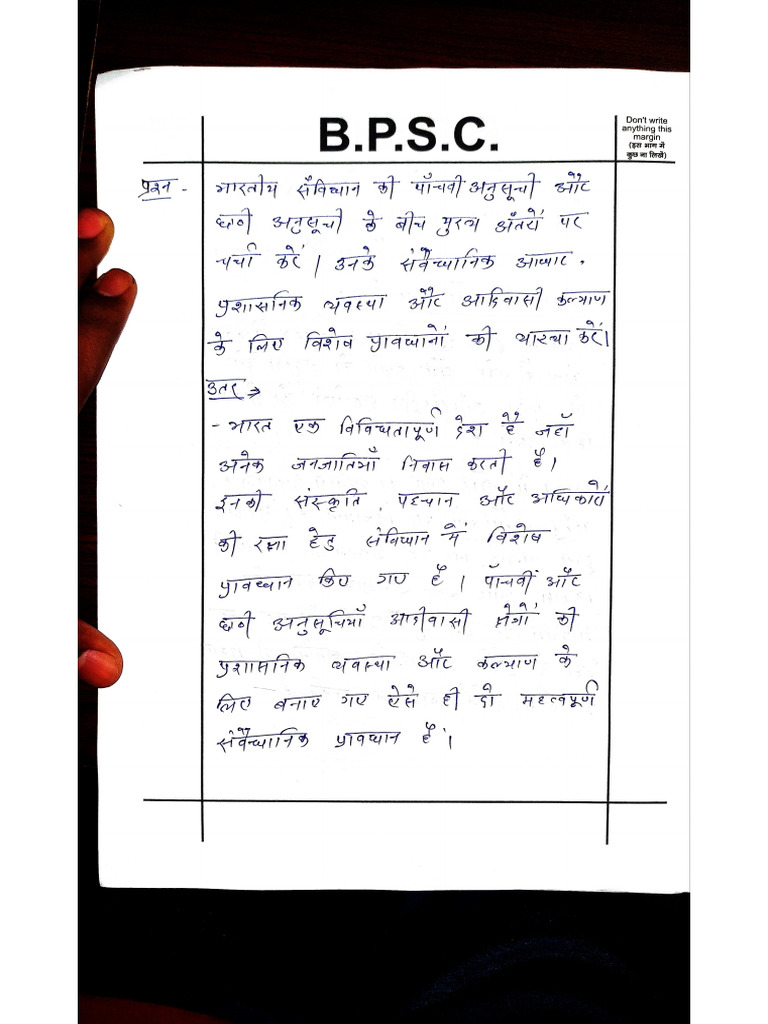 B.P.S.C.
Don't write
anything this
margin
(इस भाग में
कुछ ना लिखें)
प्रश्न - भारतीय संविधान की पाँचवी अनुसूची और
छठी अनुसूची के बीच मुख्य अंतरों पर
चर्चा करें। उनके संवैधानिक आधार,
प्रशासनिक व्यवस्था और आदिवासी कल्याण
के लिए विशेष प्रावधानों की व्याख्या करें।
उतर →
- भारत एक विविधतापूर्ण देश है जहाँ
अनेक जनजातियाँ निवास करती है।
इनकी संस्कृति, पहचान और अधिकारों
की रक्षा हेतु संविधान में विशेष
प्रावधान किए गए है। पाँचवीं और
छठी अनुसूचियाँ आदीवासी क्षेत्रों की
प्रशासनिक व्यवस्था और कल्याण के
लिए बनाए गए ऐसे ही दो महत्वपूर्ण
संवैधानिक प्रावधान हैं।